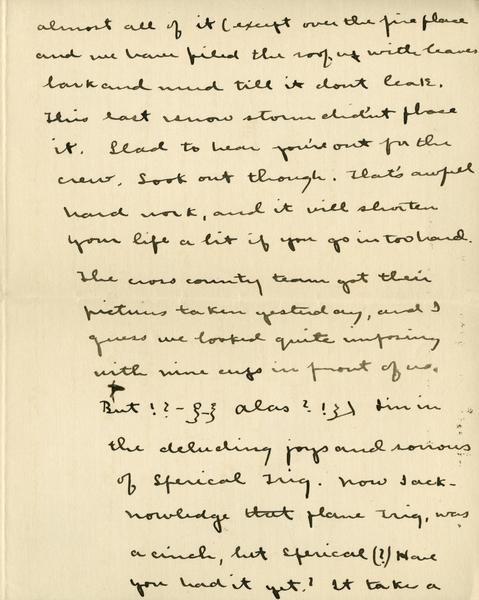 almost all of it (except over the fire place
and we have piled the roof up with leaves
bark and mud till it dont leak.
This last snow storm didn't phase
it. Glad to hear you're out for the
crew. Look out though. That's awful
hard work, and it will shorten
your life a bit if you go in too hard.
The cross county team got their
pictures taken yesterday, and I
guess we looked quite imposing
with nine cups in front of us.
But !?-}-} alas ? ! } ) I'm in
the deluding joys and sorrows
of Sperical Trig. Now I ack-
nowledge that plane Trig, was
a cinch, but Sperical (?) Have
you had it yet? It take a